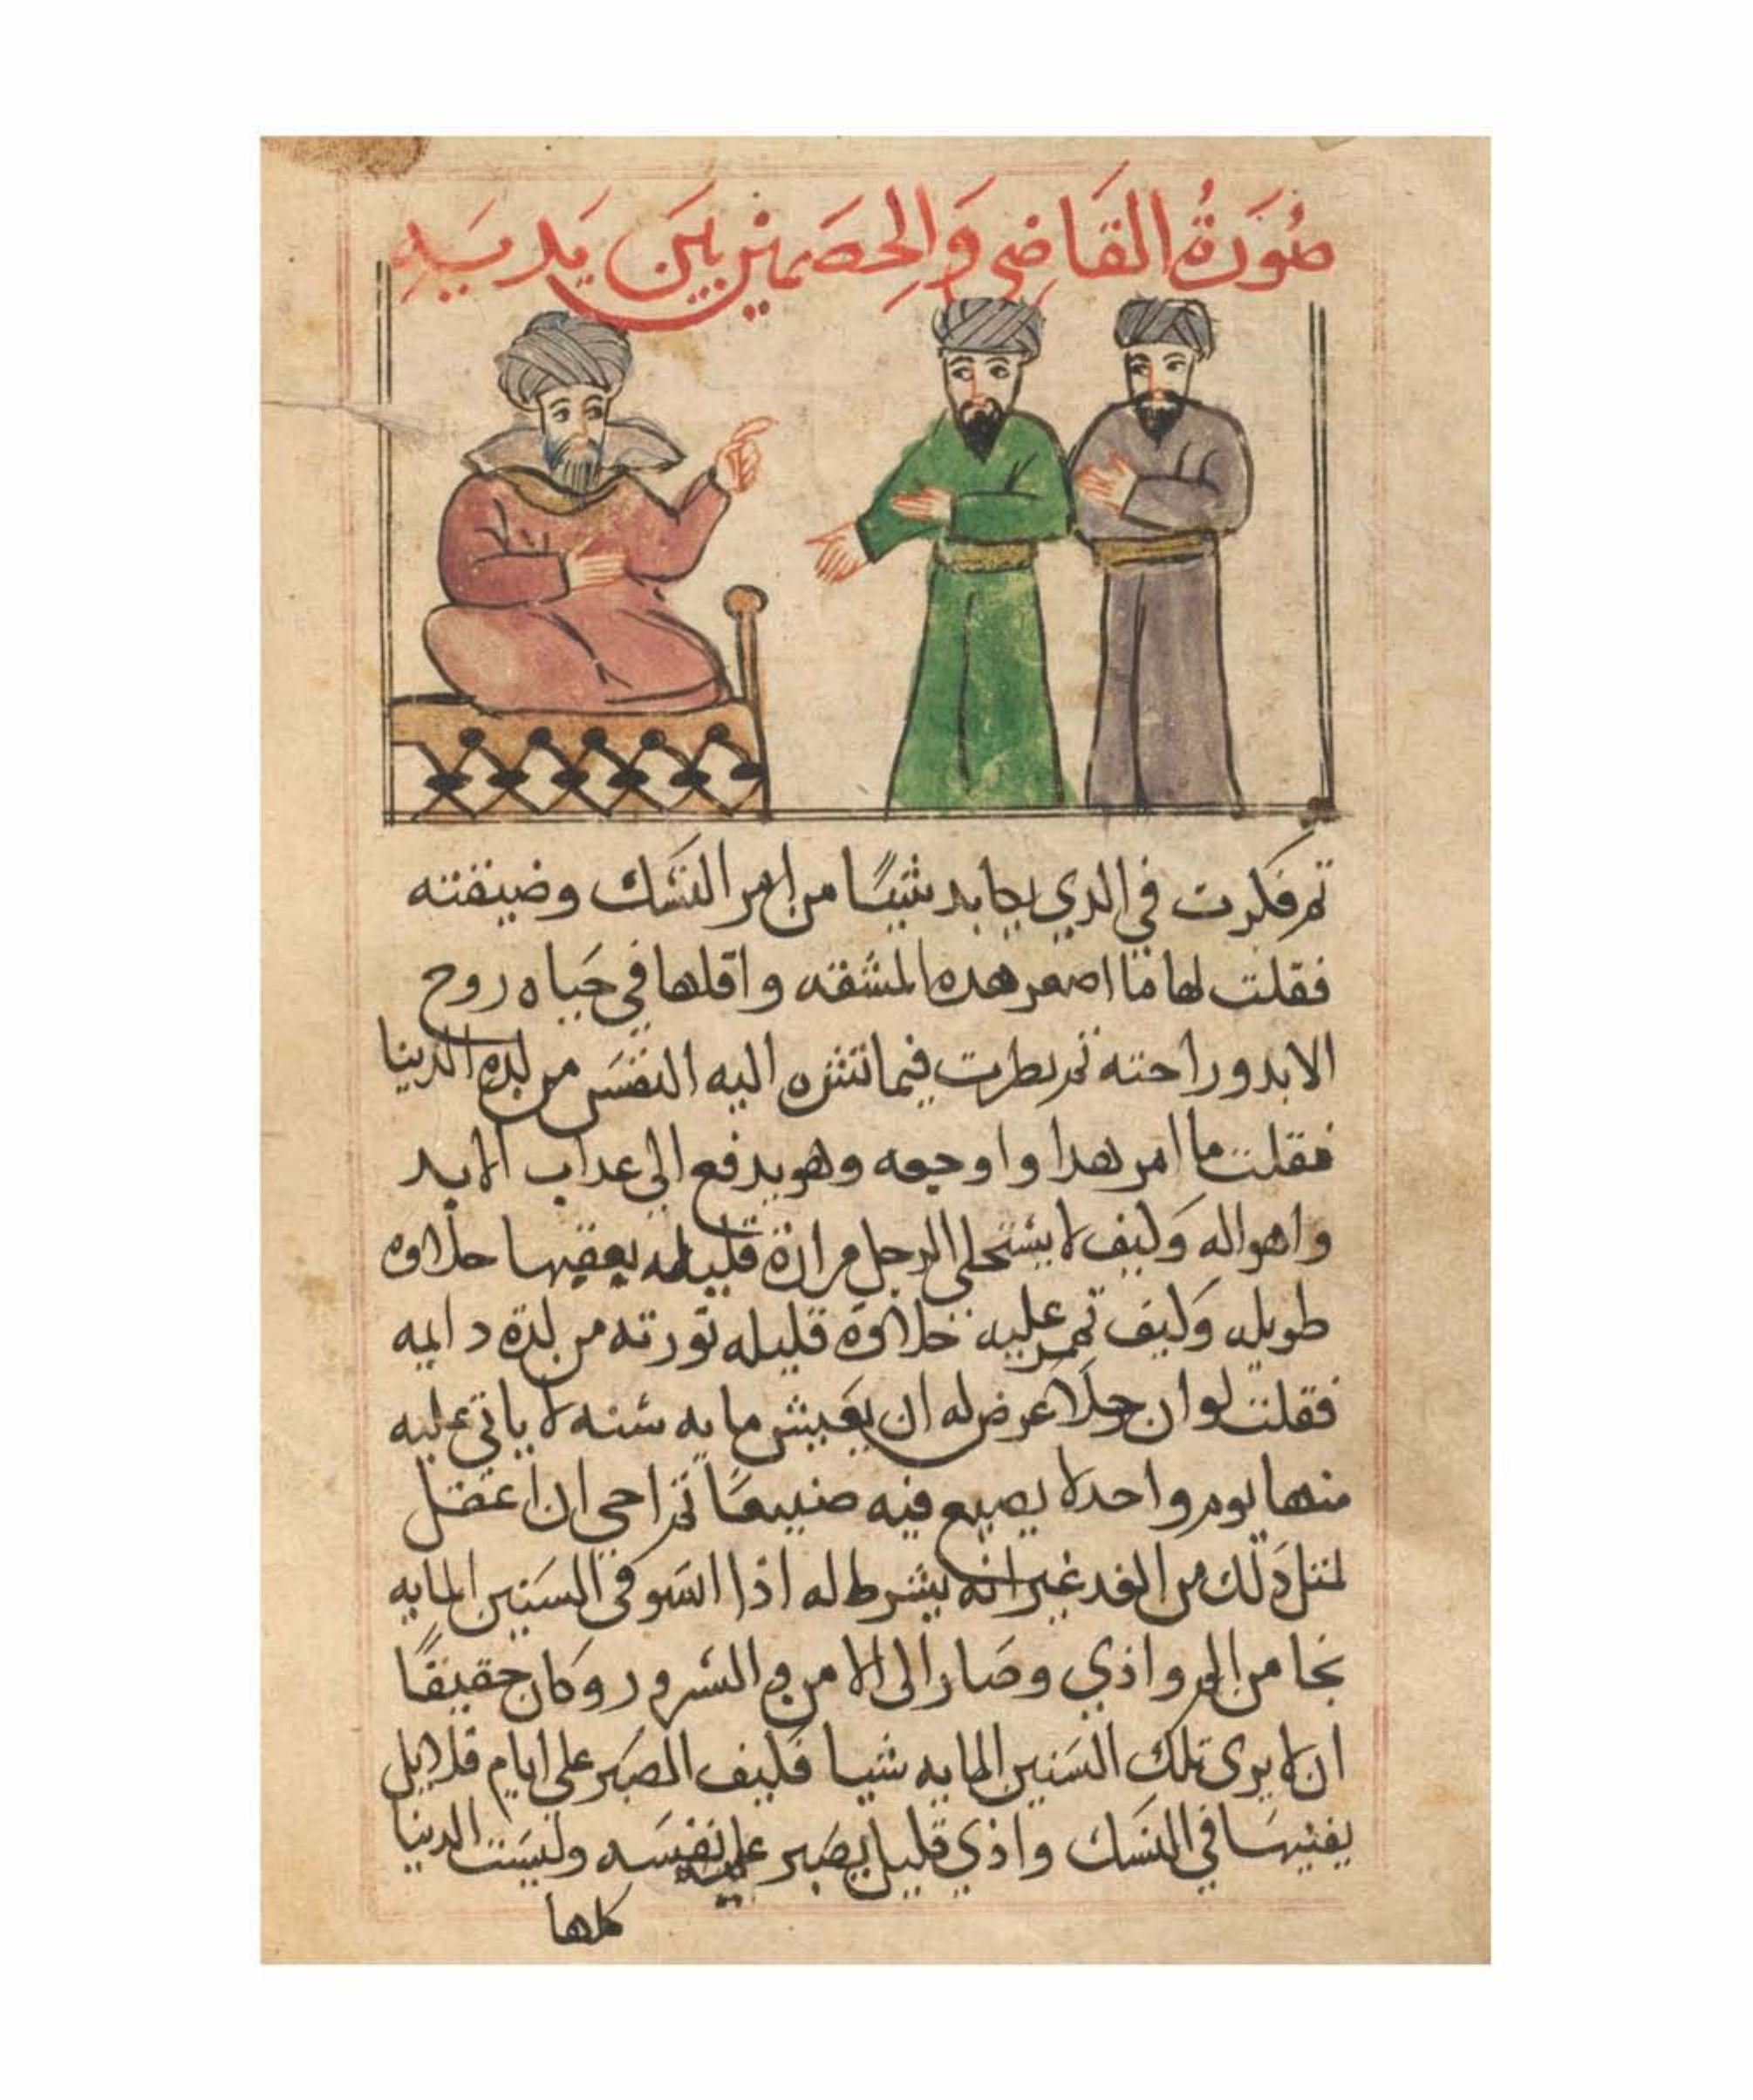 صُورَةُ القَاضِي وَالخِصَمَيْنِ بَيَن يَدَيَيهِ
تم فكرت في الدي يجابد شيئًا من امر النسك وضيقته
فقلت لها ما اصغر هده المشقه واقلها في حياه روح
الابد وراحته تم نظرت فيما تشره اليه النفس من لده الدنيا
فقلت ما امر هدا واوجعه وهو يدفع الى عداب الابد
واهواله وكيف لا يستحلي الرجل مرارة قليله يعقبها حلاوه
طويله وكيف تمر عليه حلاوة قليله تورته من لدة دايمه
فقلت لو ان رجلا عرض له ان يعيش مايه سنه لا ياتي عليه
منها يوم واحد لا يصيع فيه صنيعًا تم احي ان اعضل
لمتل دلك من الغد غير انه يشرط له اذا استوفى السنين المايه
نجا من الم واذي وصار الى الامن والسرور وكان حقيقًا
ان لا يرى تلك السنين المايه شيا فكيف الصبر على ايام قلايل
يفنيها في النسك واذي قليل يصبر عليه نفسه وليست الدنيا
كلها